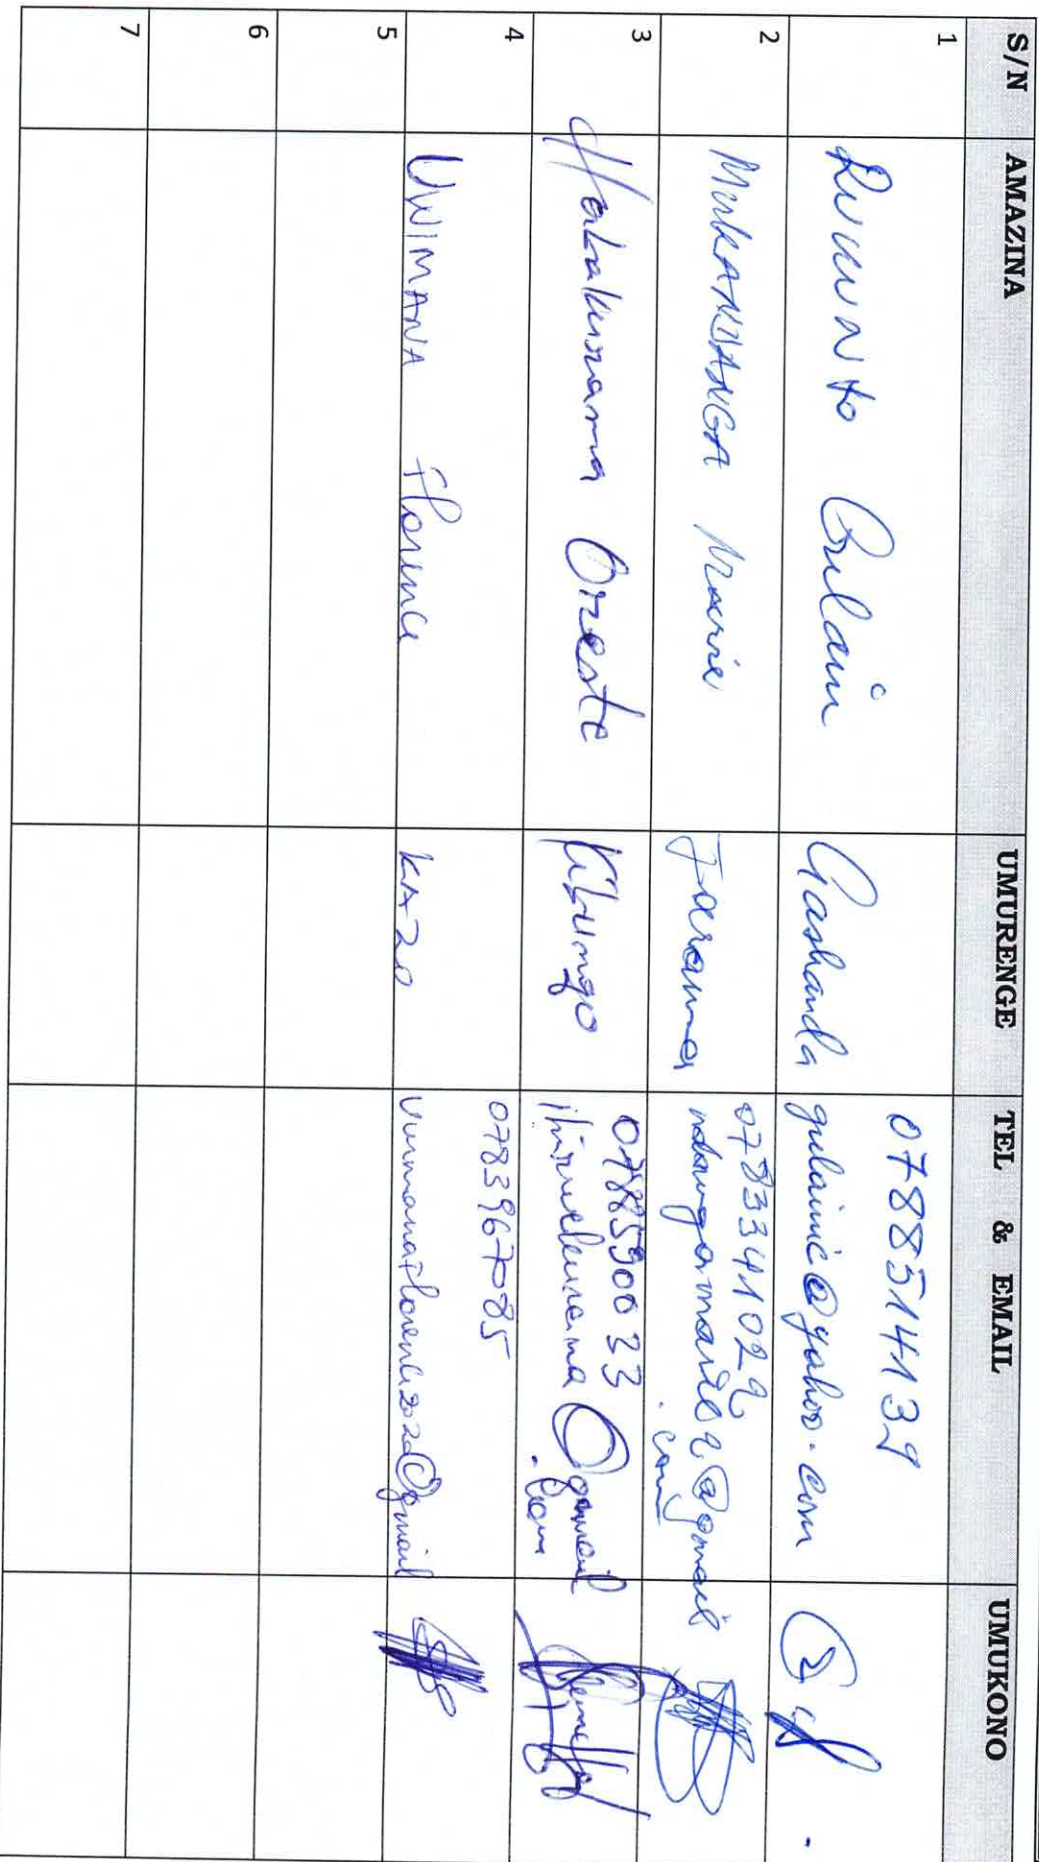 S/N AMAZINA UMURENGE TEL & EMAIL UMUKONO
1 Gashanda 0788514139
gulainic@yahoo.com
2 MUKANDANGA Marie Jarama 0783341022
@gmail
.com
3 Habakurama Oreste Kibungo 0788590033
@gmail
.com
4 UWIMANA Florence KAZO 0783967085
Uwimanaflorence2020@gmail
5
6
7